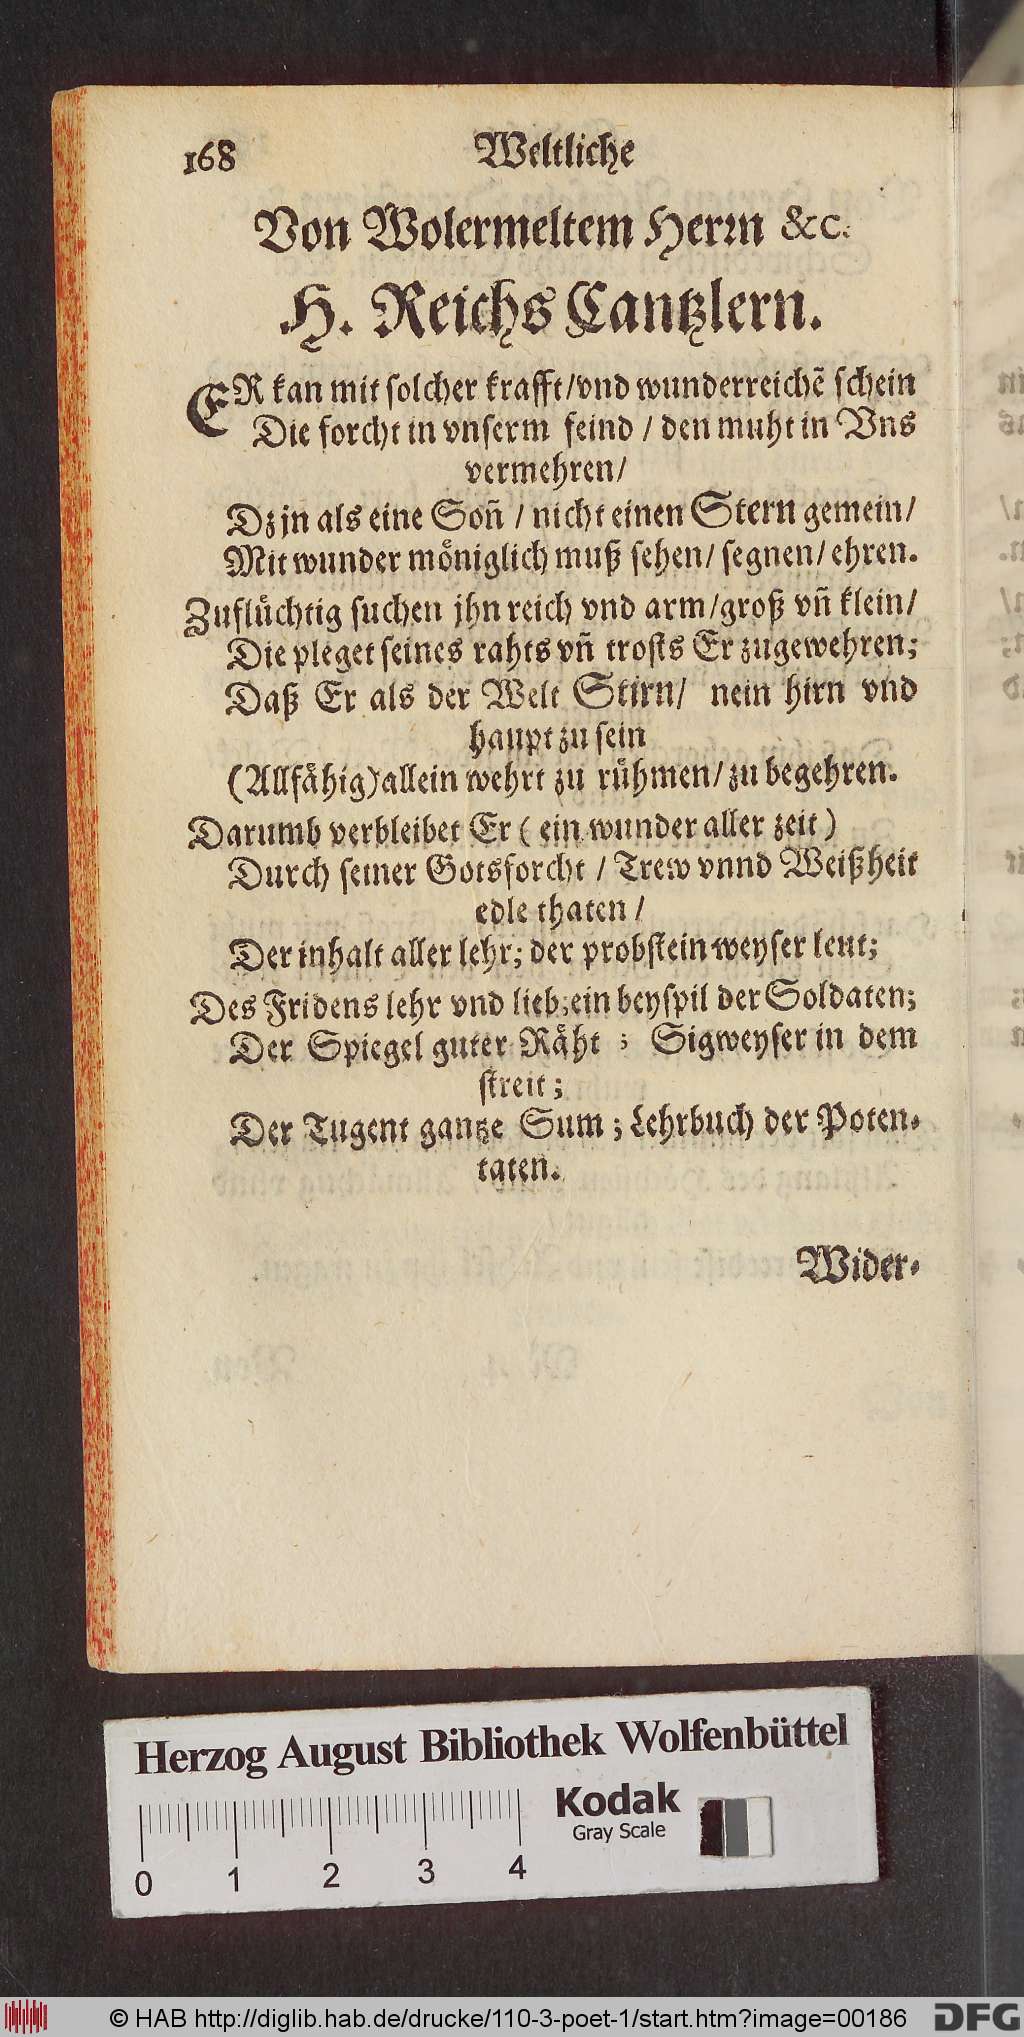 168 Weltliche
Von Wolermeltem Herrn &c.
H. Reichs Cantzlern.
ER kan mit solcher krafft/vnd wunderreichẽ schein
Die forcht in vnserm feind / den muht in Vns
vermehren/
Dz jn als eine Soñ / nicht einen Stern gemein/
Mit wunder mo͏̈niglich muß sehen/ segnen/ ehren.
Zuflüchtig suchen jhn reich vnd arm/groß vñ klein/
Die pleget seines rahts vñ trosts Er zugewehren;
Daß Er als der Welt Stirn/ nein hirn vnd
haupt zu sein
(Allfähig)allein wehrt zu rühmen/ zu begehren.
Darumb verbleibet Er ( ein wunder aller zeit )
Durch seiner Gotsforcht / Trew vnnd Weißheit
edle thaten /
Der inhalt aller lehr; der probstein weyser leut;
Des Fridens lehr vnd lieb; ein beyspil der Soldaten;
Der Spiegel guter Räht ; Sigweyser in dem
streit ;
Der Tugent gantze Sum ; Lehrbuch der Poten-
taten.
Wider-
Herzog August Bibliothek Wolfenbüttel
Kodak
Gray Scale
0 1 2 3 4
© HAB http://diglib.hab.de/drucke/110-3-poet-1/start.htm?image=00186 DFG